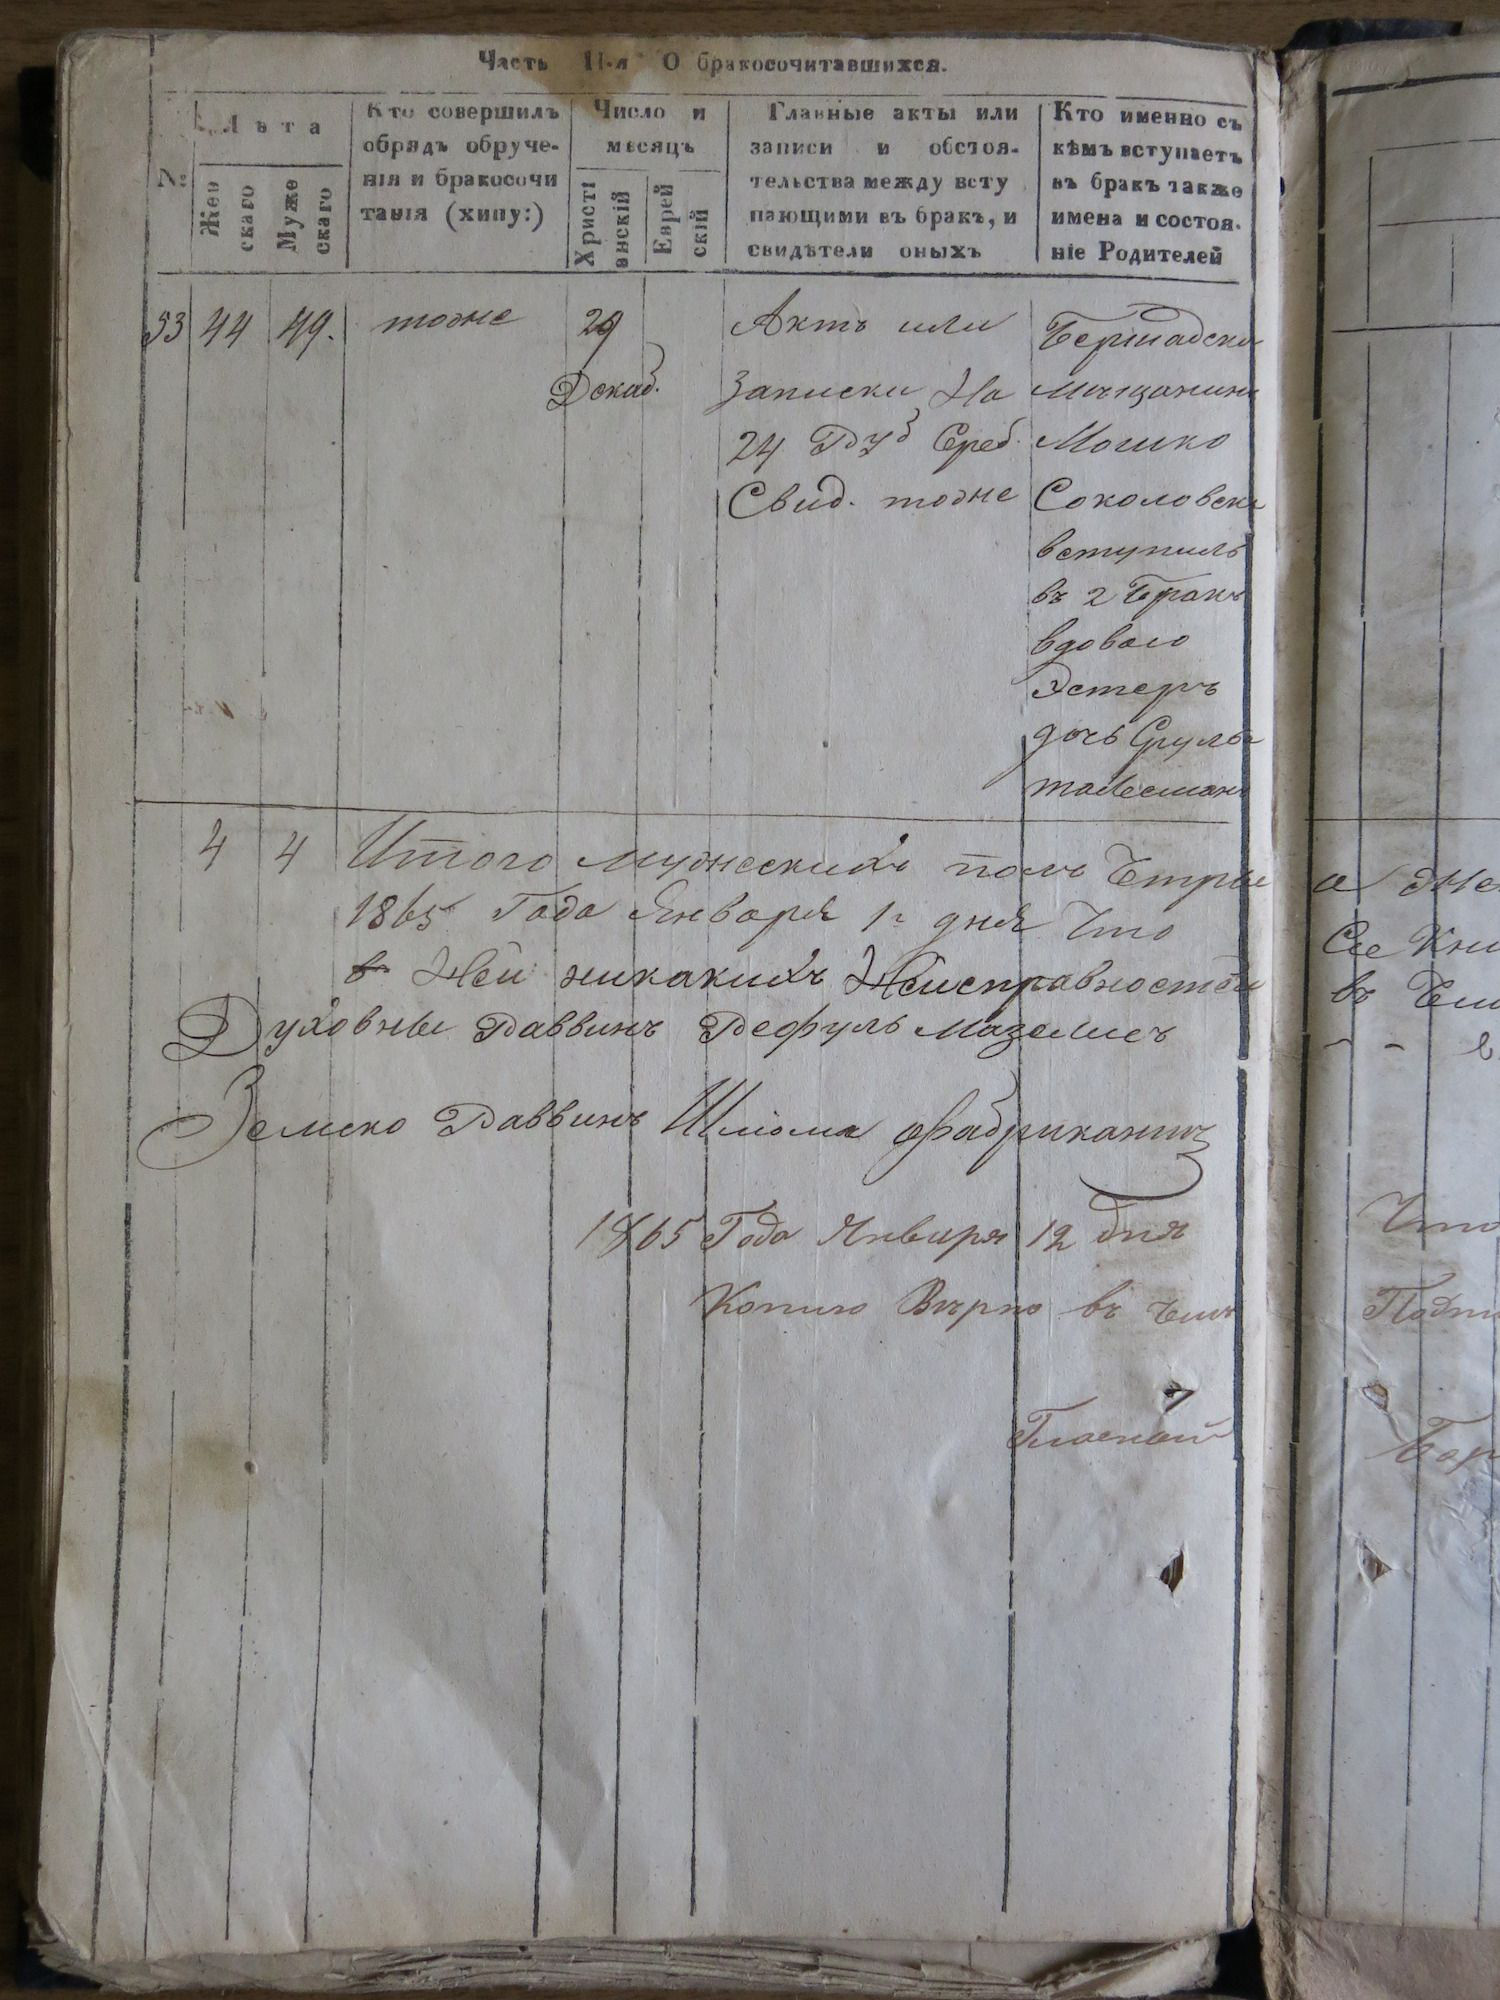 Часть II-я О бракосочитавшихся.
№
Лѣта
Женскаго
Мужескаго
Кто совершилъ
обрядъ обруче-
нія и бракосочи
танія (хипу:)
Число и
месяцъ
Христі
анскій
Еврей
скій
Главные акты или
записи и обстоя-
тельства между всту
пающими въ бракъ, и
свидѣтели оныхъ
Кто именно съ
кѣмъ вступаетъ
въ бракъ также
имена и состоя-
ніе Родителей
53 44 49. тоже
29
Декаб.
Актъ или
записки На
24 Руб Сереб.
Свид. тоже
Бершадски
Мѣщанинъ
Мошко
Соколовски
вступилъ
въ 2 Бракъ
вдовою
Эстеръ
дочь Сруль
4 4 Итого мужескихъ полъ Четрые
1865 Года Января 1г дня Что
в Ней никакихъ Неисправностей
Духовны Раввинъ
Земско Раввинъ Шліома Фабрикантъ
1865 Года Января 12 дня
Копию Вѣрно въ чемъ
Гласной
а
Сее Кни
въ Чем
Что